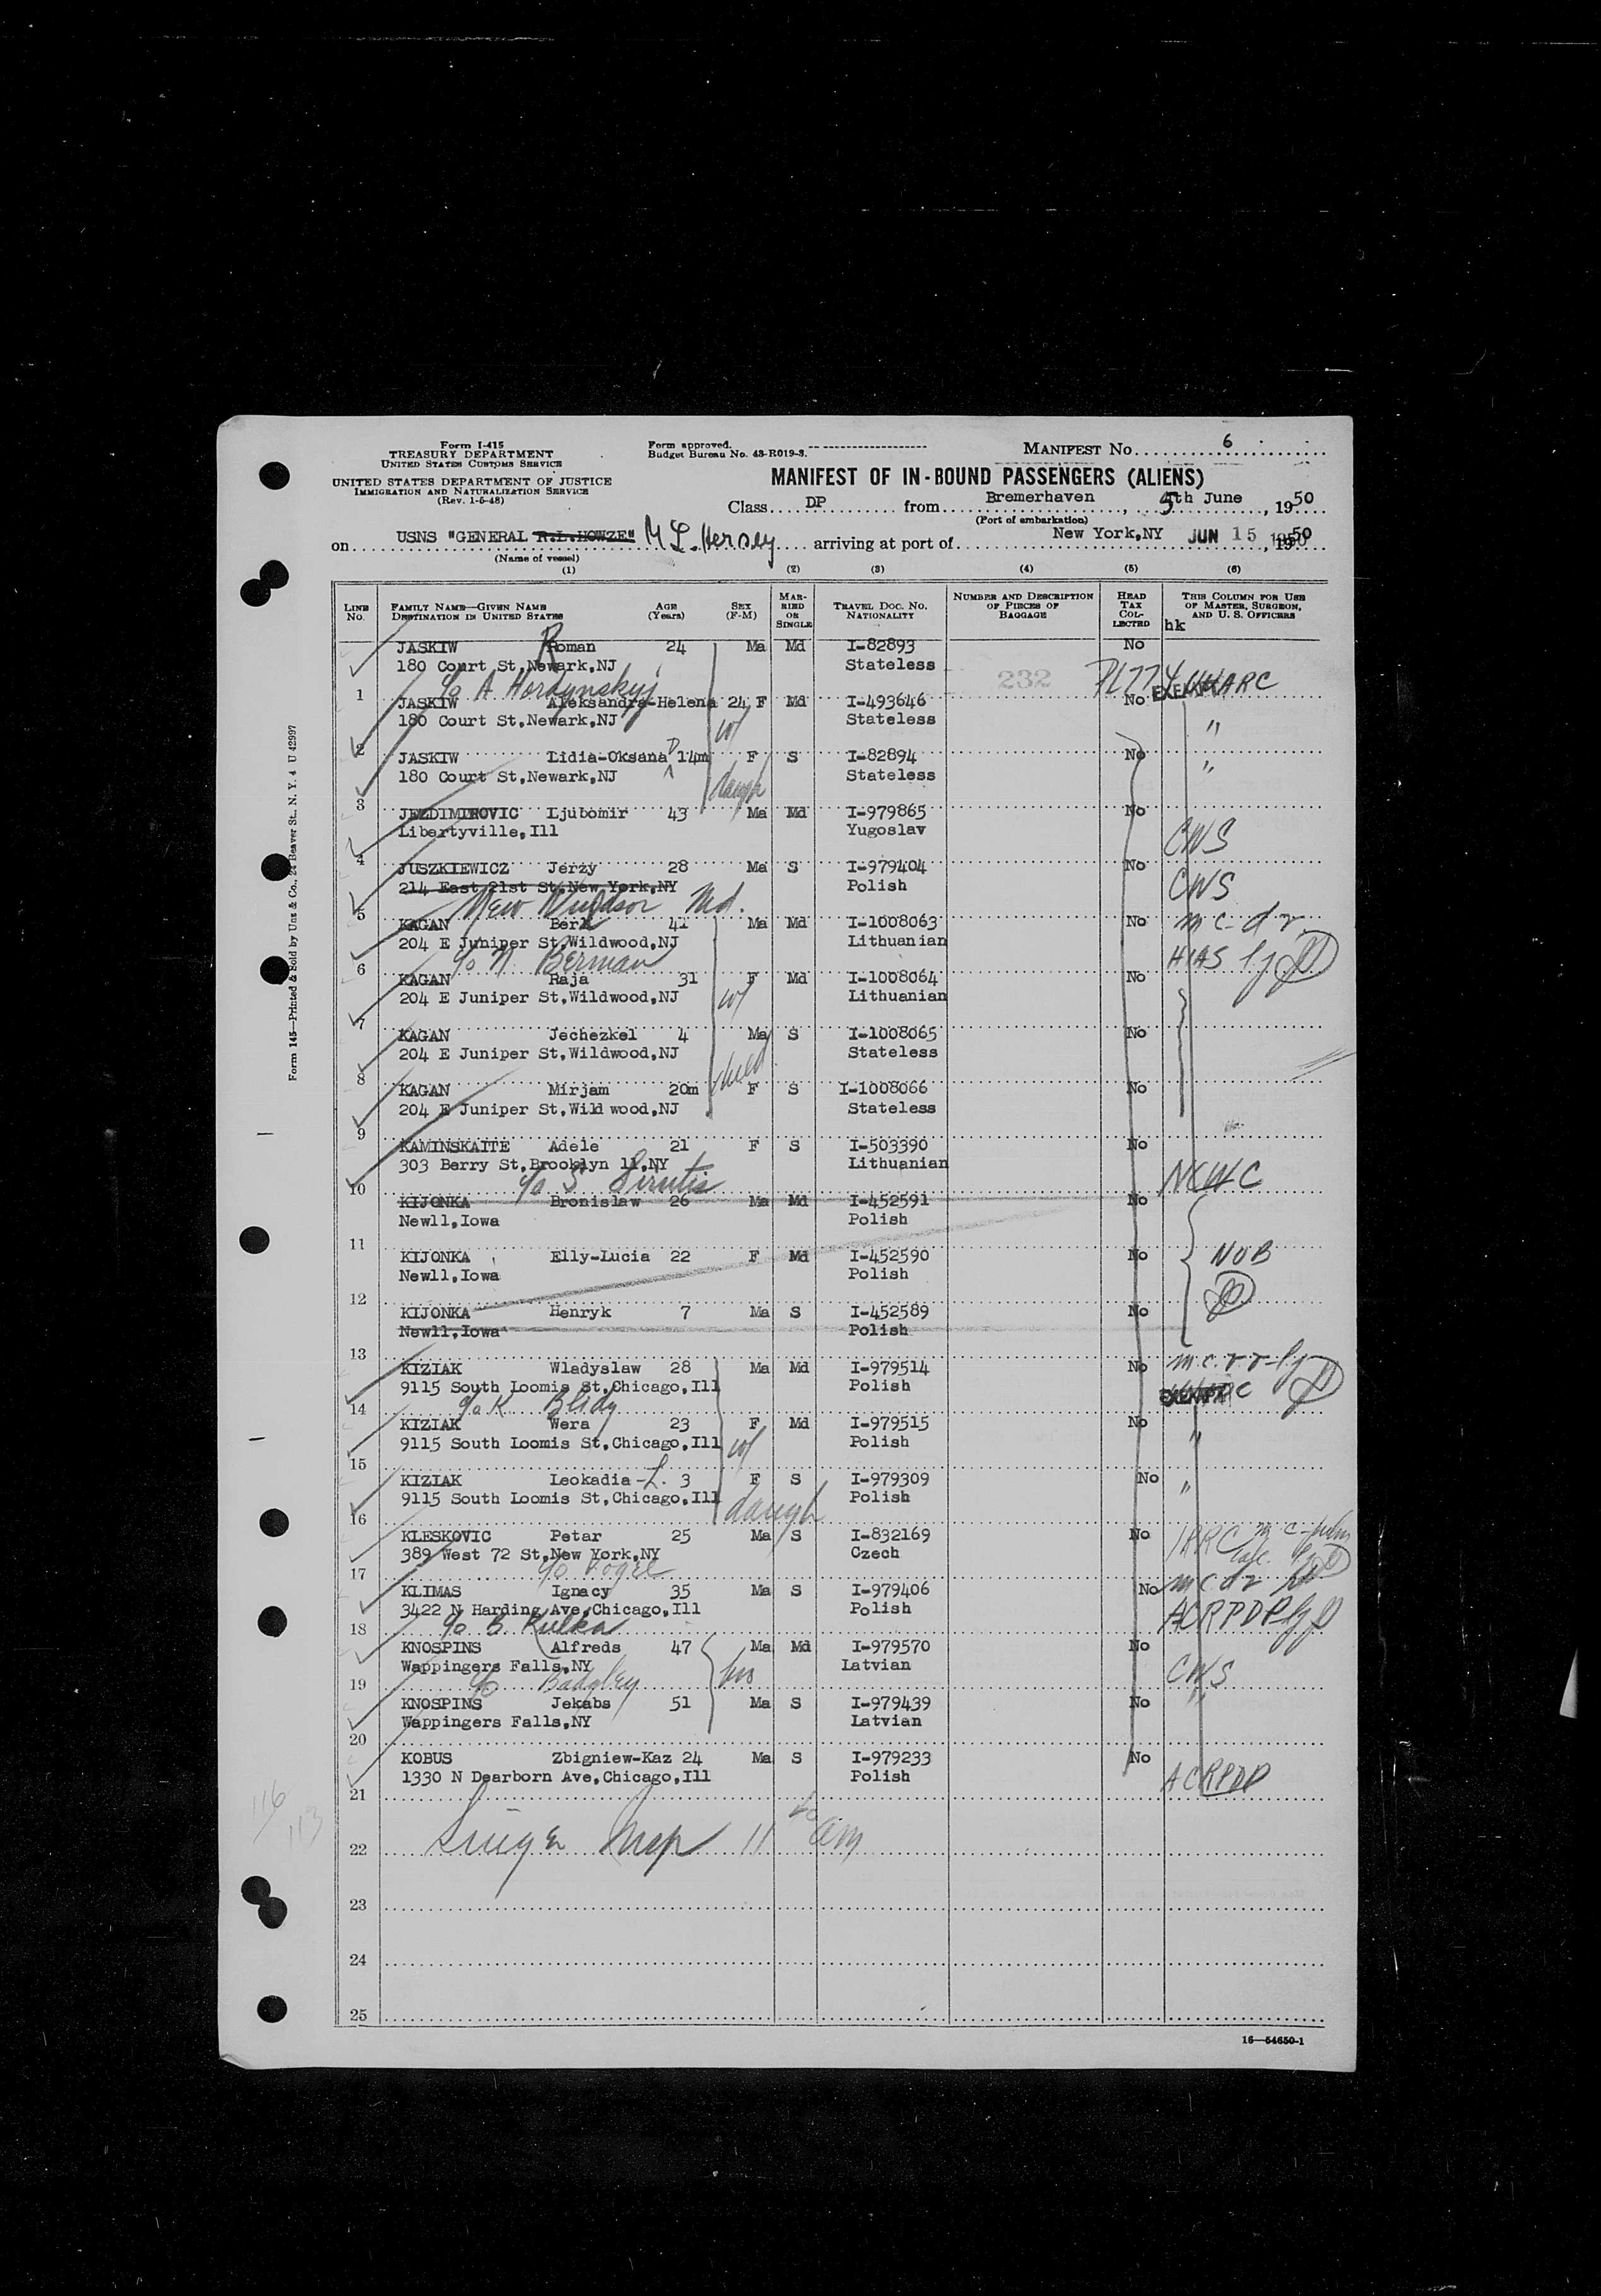 Form I-415
TREASURY DEPARTMENT
UNITED STATES CUSTOMS SERVICE
UNITED STATES DEPARTMENT OF JUSTICE
IMMIGRATION AND NATURALIZATION SERVICE
(Rev. 1-5-48)
Form approved.
Budget Bureau No. 43-R019-3.
MANIFEST No. 6
MANIFEST OF IN-BOUND PASSENGERS (ALIENS)
Class DP from Bremerhaven, 5th June, 1950
(Port of embarkation)
on USNS "GENERAL R.L.HOWZE" M L. Hersey arriving at port of New York,NY JUN 15, 1950
(Name of vessel)
(1) (2) (3) (4) (5) (6)
LINE No. FAMILY NAME—GIVEN NAME DESTINATION IN UNITED STATES AGE (Years) SEX (F-M) MARRIED OR SINGLE TRAVEL DOC. NO. NATIONALITY NUMBER AND DESCRIPTION OF PIECES OF BAGGAGE HEAD TAX COLLECTED THIS COLUMN FOR USE OF MASTER, SURGEON, AND U. S. OFFICERS
hk
JASKIW Roman 24 Ma Md I-82893 No
180 Court St,Newark,NJ Stateless 232
1 c/o A Hordynskyj EXEMPT
JASKIW Aleksandra-Helena 24 F Md I-493646 No
180 Court St,Newark,NJ Stateless "
2 wf
JASKIW Lidia-Oksana 14m F S I-82894 No
180 Court St,Newark,NJ Stateless "
3 daugh
JEZDIMIROVIC Ljubomir 43 Ma Md I-979865 No
Libertyville,Ill Yugoslav CWS
4
JUSZKIEWICZ Jerzy 28 Ma S I-979404 No
214 East 21st St,New York,NY Polish CWS
5 New Windsor Md.
KAGAN Berl 41 Ma Md I-1008063 No m c d r
204 E Juniper St,Wildwood,NJ Lithuanian HIAS
6 c/o N Berman
KAGAN Raja 31 F Md I-1008064 No
204 E Juniper St,Wildwood,NJ wf Lithuanian
7
KAGAN Jechezkel 4 Ma S I-1008065 No
204 E Juniper St,Wildwood,NJ Stateless
8
KAGAN Mirjam 20m F S I-1008066 No
204 E Juniper St,Wild wood,NJ Stateless
9
KAMINSKAITE Adele 21 F S I-503390 No
303 Berry St,Brooklyn 11,NY Lithuanian NCWC
10 c/o S Sirutis
KIJONKA Bronislaw 26 Ma Md I-452591 No
Newll,Iowa Polish
11
KIJONKA Elly-Lucia 22 F Md I-452590 No NOB
Newll,Iowa Polish
12
KIJONKA Henryk 7 Ma S I-452589 No
Newll,Iowa Polish
13
KIZIAK Wladyslaw 28 Ma Md I-979514 No
9115 South Loomis St,Chicago,Ill Polish EXEMPT
14 c/o K Blidy
KIZIAK Wera 23 F Md I-979515 No
9115 South Loomis St,Chicago,Ill wf Polish "
15
KIZIAK Leokadia-L. 3 F S I-979309 No
9115 South Loomis St,Chicago,Ill Polish "
16 daugh
KLESKOVIC Petar 25 Ma S I-832169 No
389 West 72 St,New York,NY Czech
17 c/o Vogel
KLIMAS Ignacy 35 Ma S I-979406 No m c d r
3422 N Harding Ave,Chicago,Ill Polish ACRPDP
18 c/o B. Kulka
KNOSPINS Alfreds 47 Ma Md I-979570 No
Wappingers Falls,NY Latvian CWS
19 c/o Badgley bros
KNOSPINS Jekabs 51 Ma S I-979439 No "
Wappingers Falls,NY Latvian
20
KOBUS Zbigniew-Kaz 24 Ma S I-979233 No
1330 N Dearborn Ave,Chicago,Ill Polish ACRPDP
21
22 Insp
23
24
25
16—54650-1
Form 145—Printed & Sold by Unz & Co., 24 Beaver St., N. Y. 4 U 42997
116
113